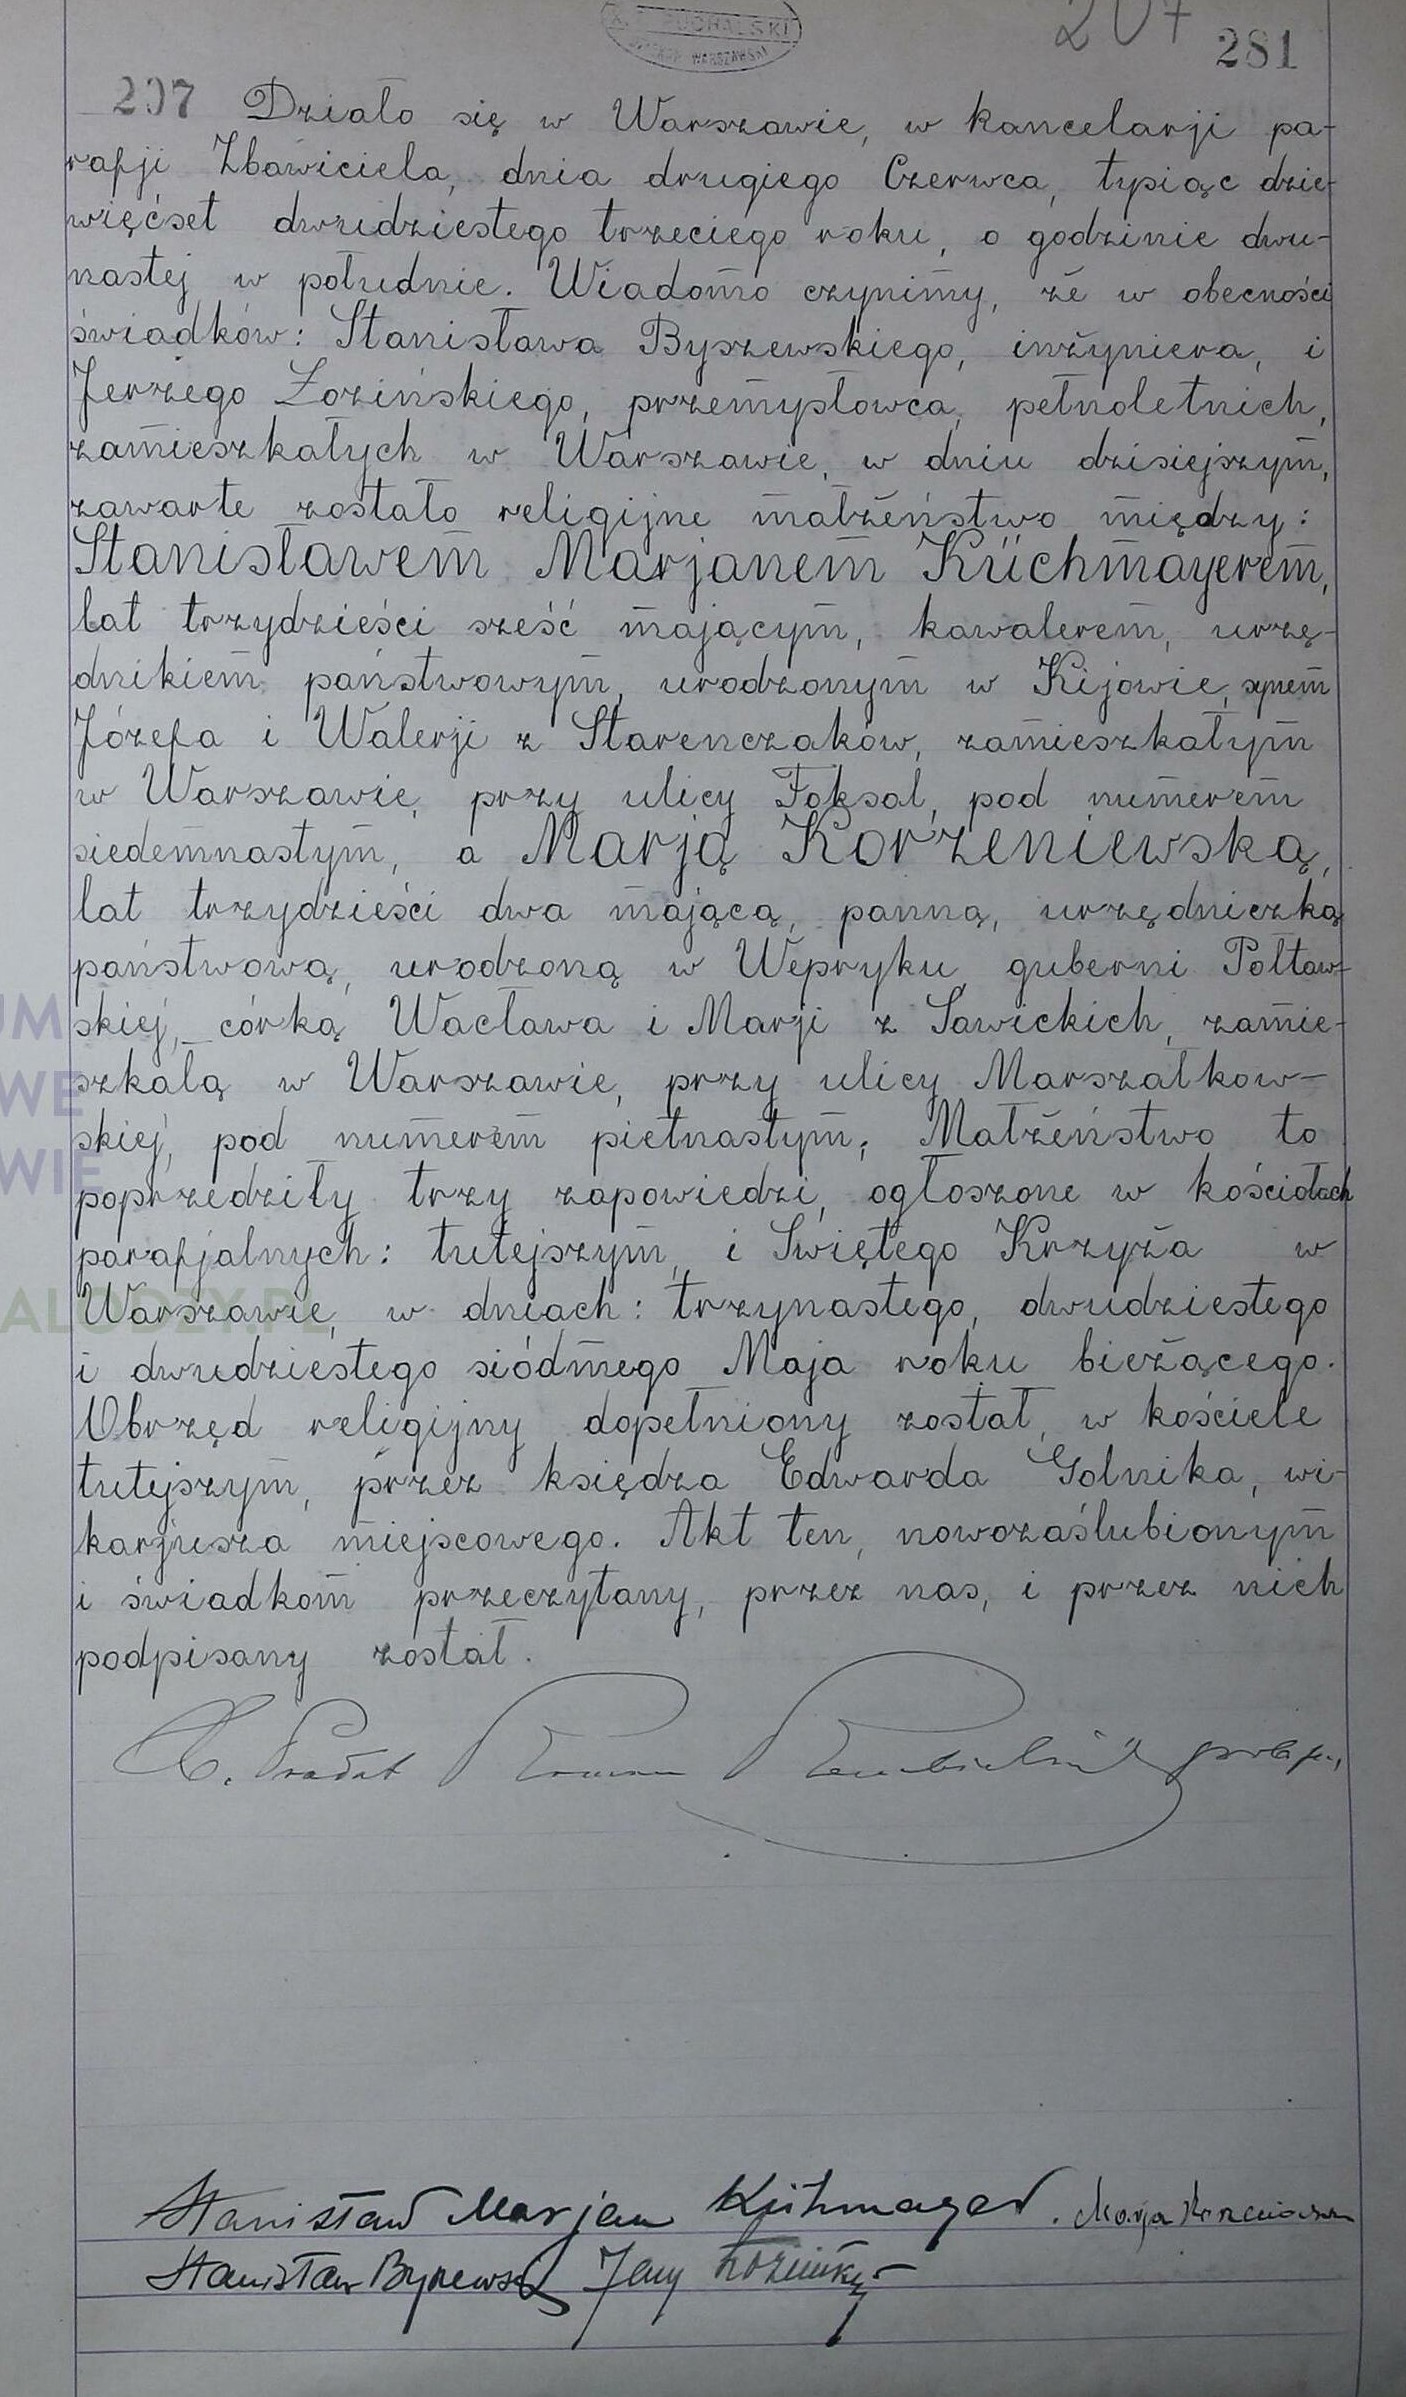 PUCHALSKI
WARSZAWSKI
207
281
207 Działo się w Warszawie, w kancelarji pa-
rafji Zbawiciela, dnia drugiego Czerwca, tysiąc dzie-
więćset dwudziestego trzeciego roku, o godzinie dwu-
nastej w południe. Wiadomo czynimy, że w obecności
świadków: Stanisława Byszewskiego, inżyniera, i
Jerzego Łozińskiego, przemysłowca, pełnoletnich,
zamieszkałych w Warszawie, w dniu dzisiejszym,
zawarte zostało religijne małżeństwo między:
Stanisławem Marjanem Küchmayerem,
lat trzydzieści sześć mającym, kawalerem, urzę-
dnikiem państwowym, urodzonym w Kijowie, synem
Józefa i Walerji z Starenczaków, zamieszkałym
w Warszawie, przy ulicy Foksal, pod numerem
siedemnastym, a Marją Korzeniewską,
lat trzydzieści dwa mającą, panną, urzędniczką
państwową, urodzoną w Wepryku, guberni Połtaw-
skiej, córką Wacława i Marji z Sawickich, zamie-
szkałą w Warszawie, przy ulicy Marszałkow-
skiej, pod numerem piętnastym; Małżeństwo to
poprzedziły trzy zapowiedzi, ogłoszone w kościołach
parafjalnych: tutejszym, i Świętego Krzyża w
Warszawie, w dniach: trzynastego, dwudziestego
i dwudziestego siódmego Maja roku bieżącego.
Obrzęd religijny dopełniony został, w kościele
tutejszym, przez księdza Edwarda Golnika, wi-
karjusza miejscowego. Akt ten, nowozaślubionym
i świadkom przeczytany, przez nas, i przez nich
podpisany został.
X. Prałat
Stanisław Marjan Kühmayer. Marja Korzeniowska
Stanisław Byszewski Jerzy Łoziński
UM
WE
WIE
ALODZY.PL